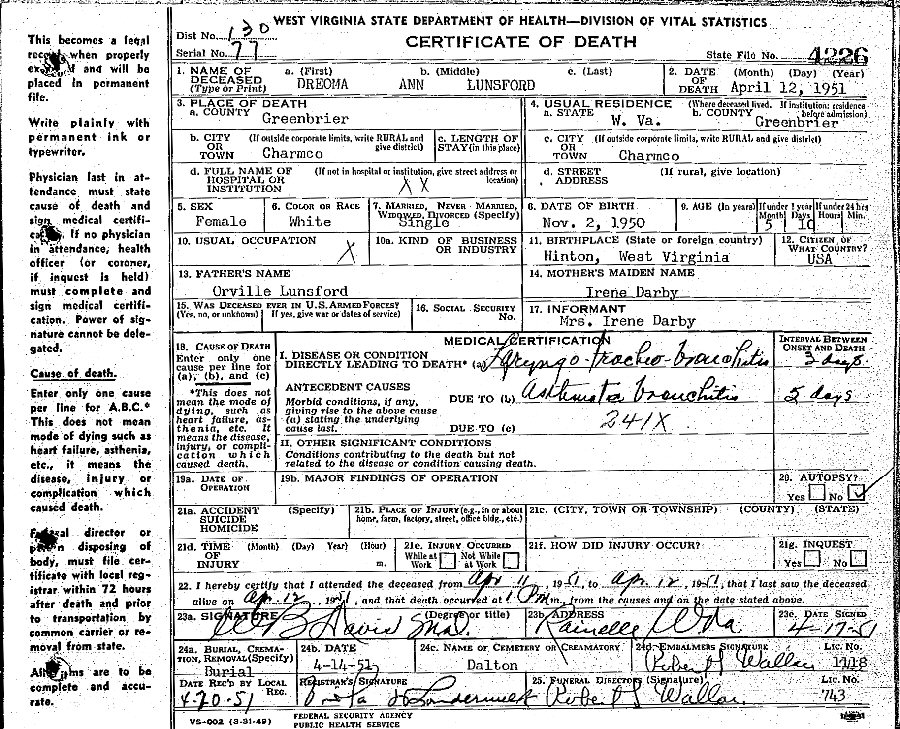 WEST VIRGINIA STATE DEPARTMENT OF HEALTH—DIVISION OF VITAL STATISTICS
CERTIFICATE OF DEATH
Dist No. 130
Serial No. 77
State File No. 4226
This becomes a legal
record when properly
and will be
placed in permanent
file.
Write plainly with
permanent ink or
typewriter.
Physician last in at-
tendance must state
cause of death and
sign medical certifi-
If no physician
in attendance, health
officer (or coroner,
if inquest is held)
must complete and
sign medical certifi-
cation. Power of sig-
nature cannot be dele-
gated.
Cause of death.
Enter only one cause
per line for A.B.C.*
This does not mean
mode of dying such as
heart failure, asthenia,
etc., it means the
disease, injury or
complication which
caused death.
director or
disposing of
body, must file cer-
tificate with local reg-
istrar within 72 hours
after death and prior
to transportation by
common carrier or re-
moval from state.
All items are to be
complete and accu-
rate.
1. NAME OF DECEASED (Type or Print) a. (First) b. (Middle) c. (Last)
DREOMA ANN LUNSFORD
2. DATE OF DEATH (Month) (Day) (Year)
April 12, 1951
3. PLACE OF DEATH
a. COUNTY Greenbrier
4. USUAL RESIDENCE (Where deceased lived. If institution: residence before admission)
a. STATE W. Va. b. COUNTY Greenbrier
b. CITY OR TOWN (If outside corporate limits, write RURAL and give district) Charmco
c. LENGTH OF STAY (in this place)
c. CITY OR TOWN (If outside corporate limits, write RURAL and give district) Charmco
d. FULL NAME OF HOSPITAL OR INSTITUTION (If not in hospital or institution, give street address or location) X X
d. STREET ADDRESS (If rural, give location)
5. SEX Female
6. COLOR OR RACE White
7. MARRIED, NEVER MARRIED, WIDOWED, DIVORCED (Specify) Single
8. DATE OF BIRTH Nov. 2, 1950
9. AGE (In years) If under 1 year Months 5 Days 10 If under 24 hrs Hours Min.
10. USUAL OCCUPATION X
10a. KIND OF BUSINESS OR INDUSTRY
11. BIRTHPLACE (State or foreign country) Hinton, West Virginia
12. CITIZEN OF WHAT COUNTRY? USA
13. FATHER'S NAME Orville Lunsford
14. MOTHER'S MAIDEN NAME Irene Darby
15. WAS DECEASED EVER IN U.S. ARMED FORCES? (Yes, no, or unknown) If yes, give war or dates of service)
16. SOCIAL SECURITY No.
17. INFORMANT Mrs. Irene Darby
18. CAUSE OF DEATH
Enter only one cause per line for (a), (b), and (c)
*This does not mean the mode of dying, such as heart failure, asthenia, etc. It means the disease, injury, or complication which caused death.
MEDICAL CERTIFICATION
INTERVAL BETWEEN ONSET AND DEATH
I. DISEASE OR CONDITION DIRECTLY LEADING TO DEATH* (a) Laryngo-tracheo-bronchitis 3 days
ANTECEDENT CAUSES
Morbid conditions, if any, giving rise to the above cause (a) stating the underlying cause last.
DUE TO (b) Asthmatic bronchitis 5 days
241X
DUE TO (c)
II. OTHER SIGNIFICANT CONDITIONS
Conditions contributing to the death but not related to the disease or condition causing death.
19a. DATE OF OPERATION
19b. MAJOR FINDINGS OF OPERATION
20. AUTOPSY? Yes No ✓
21a. ACCIDENT SUICIDE HOMICIDE (Specify)
21b. PLACE OF INJURY (e.g., in or about home, farm, factory, street, office bldg., etc.)
21c. (CITY, TOWN OR TOWNSHIP) (COUNTY) (STATE)
21d. TIME OF INJURY (Month) (Day) (Year) (Hour) m.
21e. INJURY OCCURRED While at Work Not While at Work
21f. HOW DID INJURY OCCUR?
21g. INQUEST Yes No
22. I hereby certify that I attended the deceased from Apr 11, 1951, to Apr. 12, 1951, that I last saw the deceased
alive on Apr. 12, 1951, and that death occurred at 1 P m., from the causes and on the date stated above.
23a. SIGNATURE (Degree or title)
23b. ADDRESS Rainelle W Va.
23c. DATE SIGNED 4-17-51
24a. BURIAL, CREMATION, REMOVAL (Specify) Burial
24b. DATE 4-14-51
24c. NAME OF CEMETERY OR CREAMATORY Dalton
24d. EMBALMERS SIGNATURE LIC. NO. 1118
DATE REC'D BY LOCAL REG. 4-20-51
REGISTRAR'S SIGNATURE
25. FUNERAL DIRECTORS (Signature) LIC. NO. 743
VS-002 (3-31-49)
FEDERAL SECURITY AGENCY
PUBLIC HEALTH SERVICE